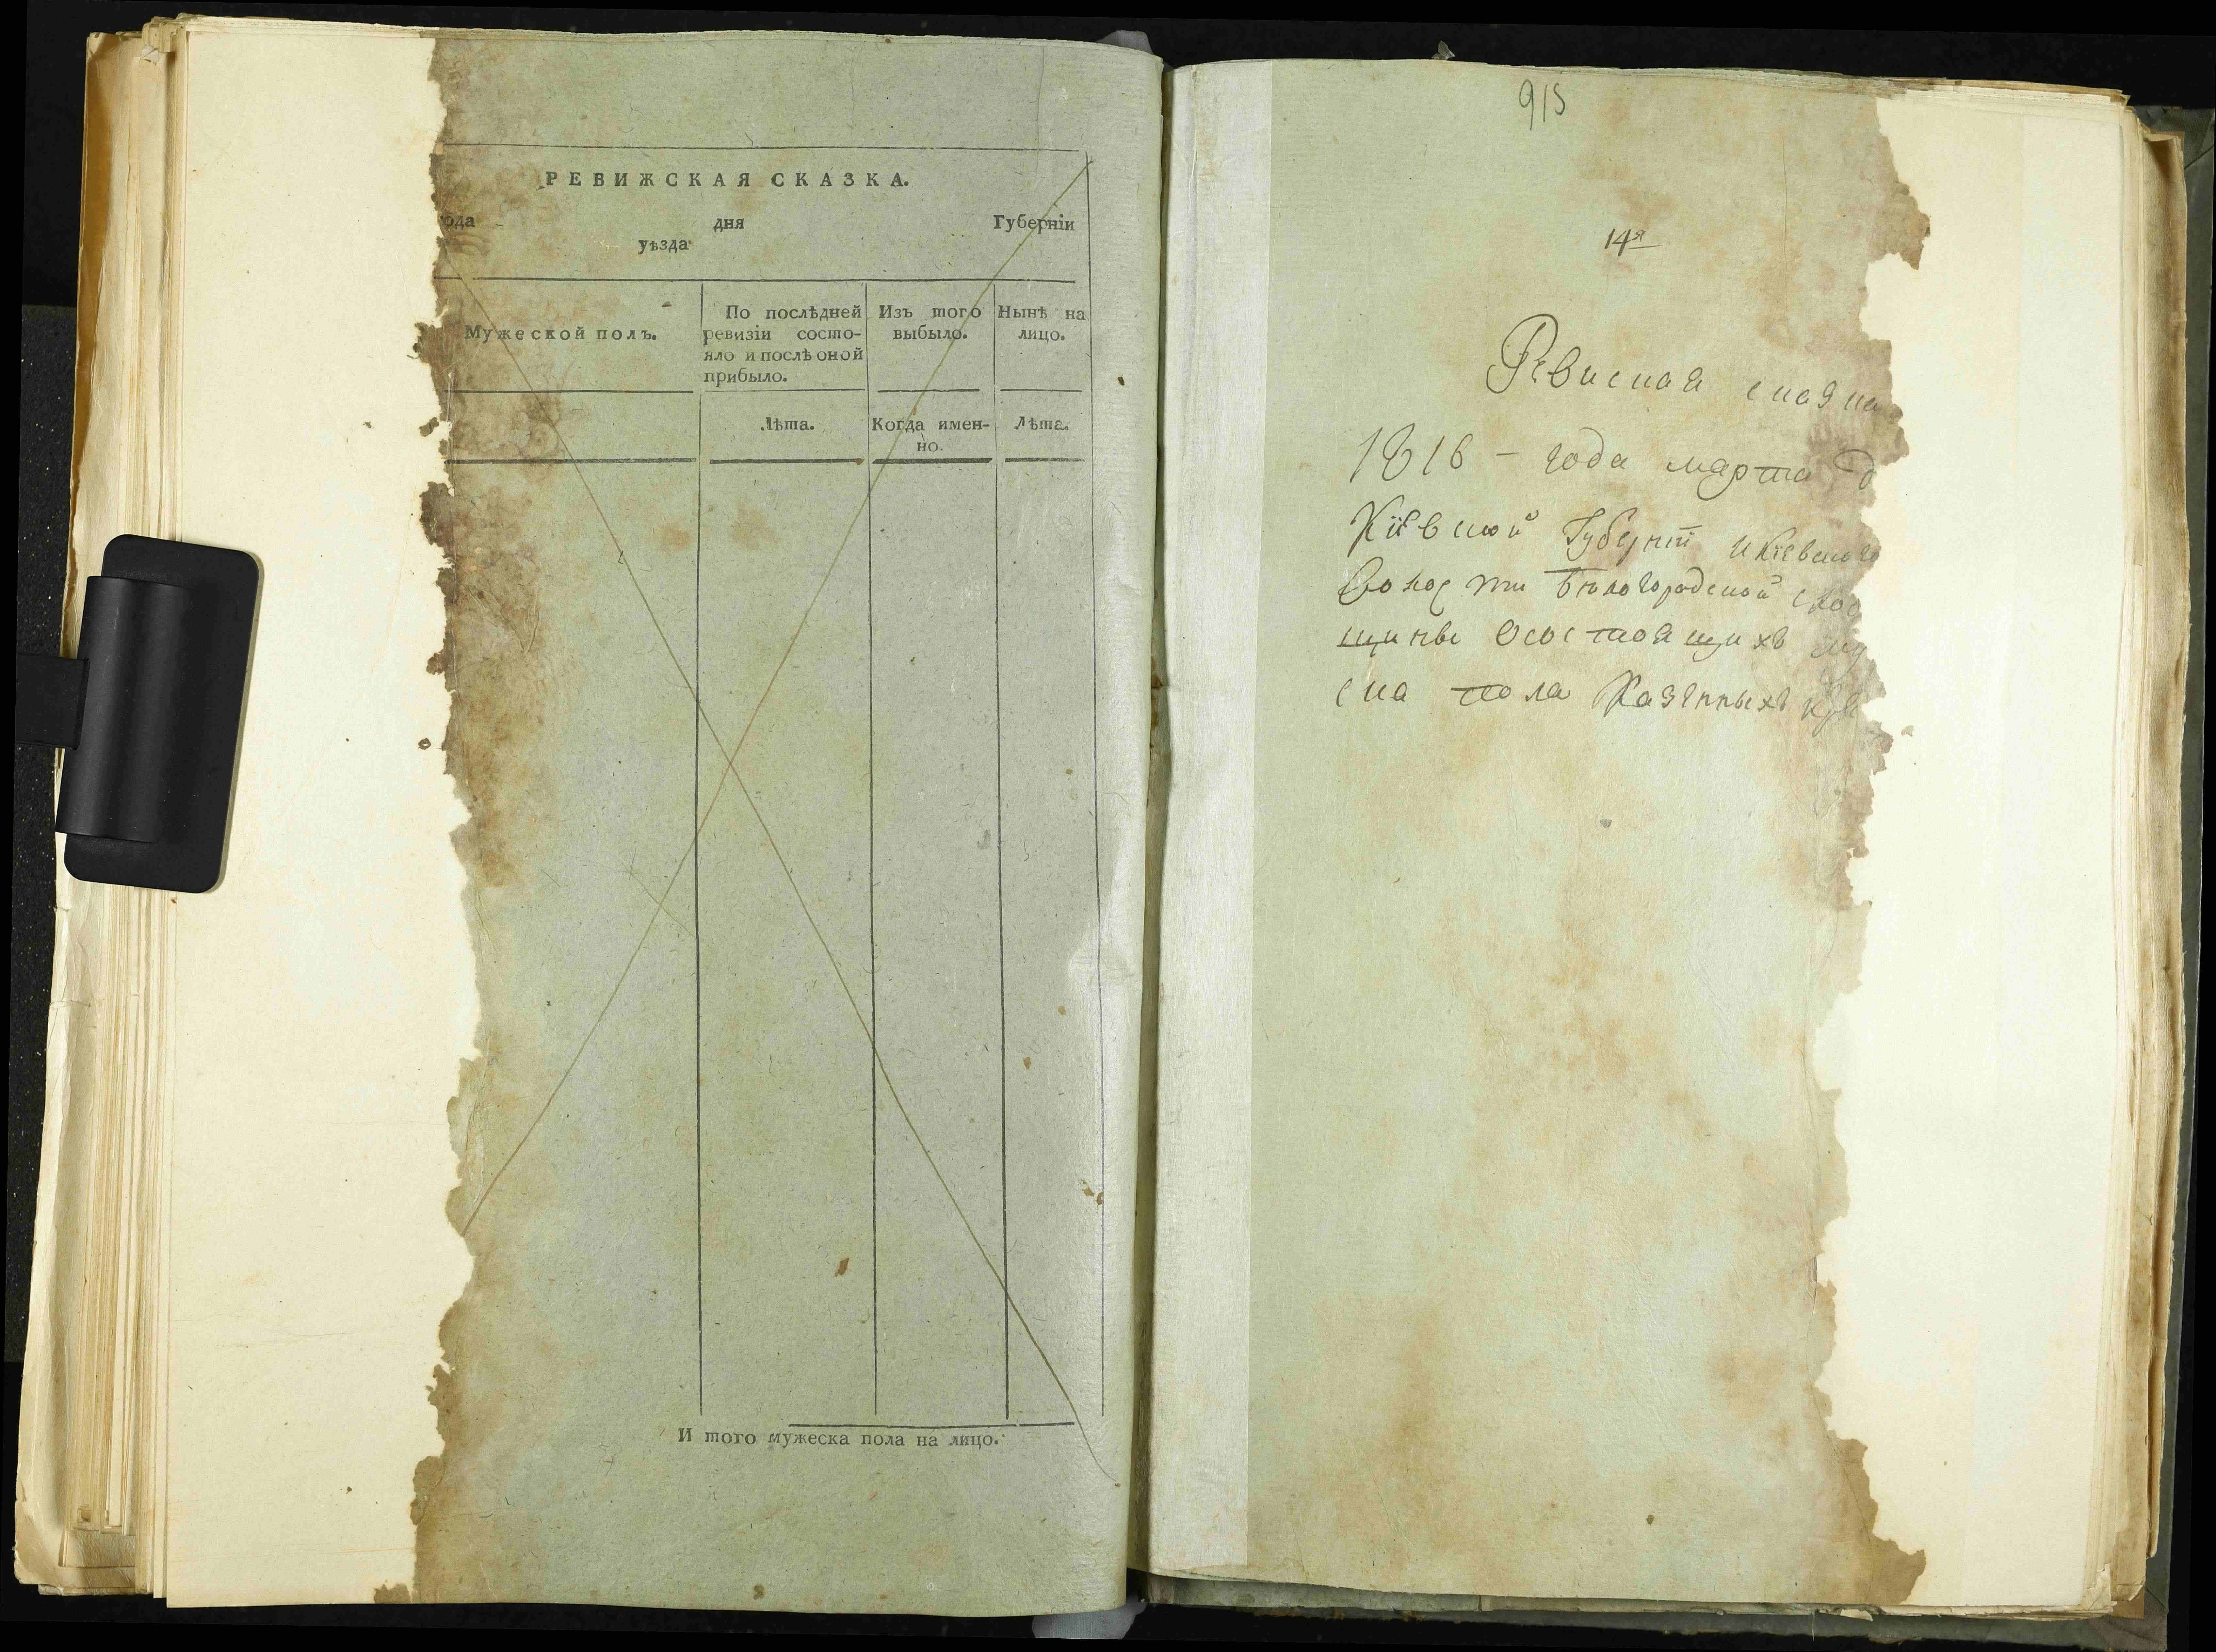 РЕВИЖСКАЯ СКАЗКА.
ода дня Губерніи
уѣзда
Мужеской полъ.
По послѣдней ревизіи состо-
яло и послѣ оной
прибыло.
Изъ того
выбыло.
Нынѣ на
лицо.
Лѣта.
Когда имен-
но.
Лѣта.
И того мужеска пола на лицо.
915
14я
Ревиская скаска
1816 - года марта д
Кіевской Губерніи и Кіевского
Волости Бѣлогородской
щины о состоящихъ му
ска пола Казенныхъ кре